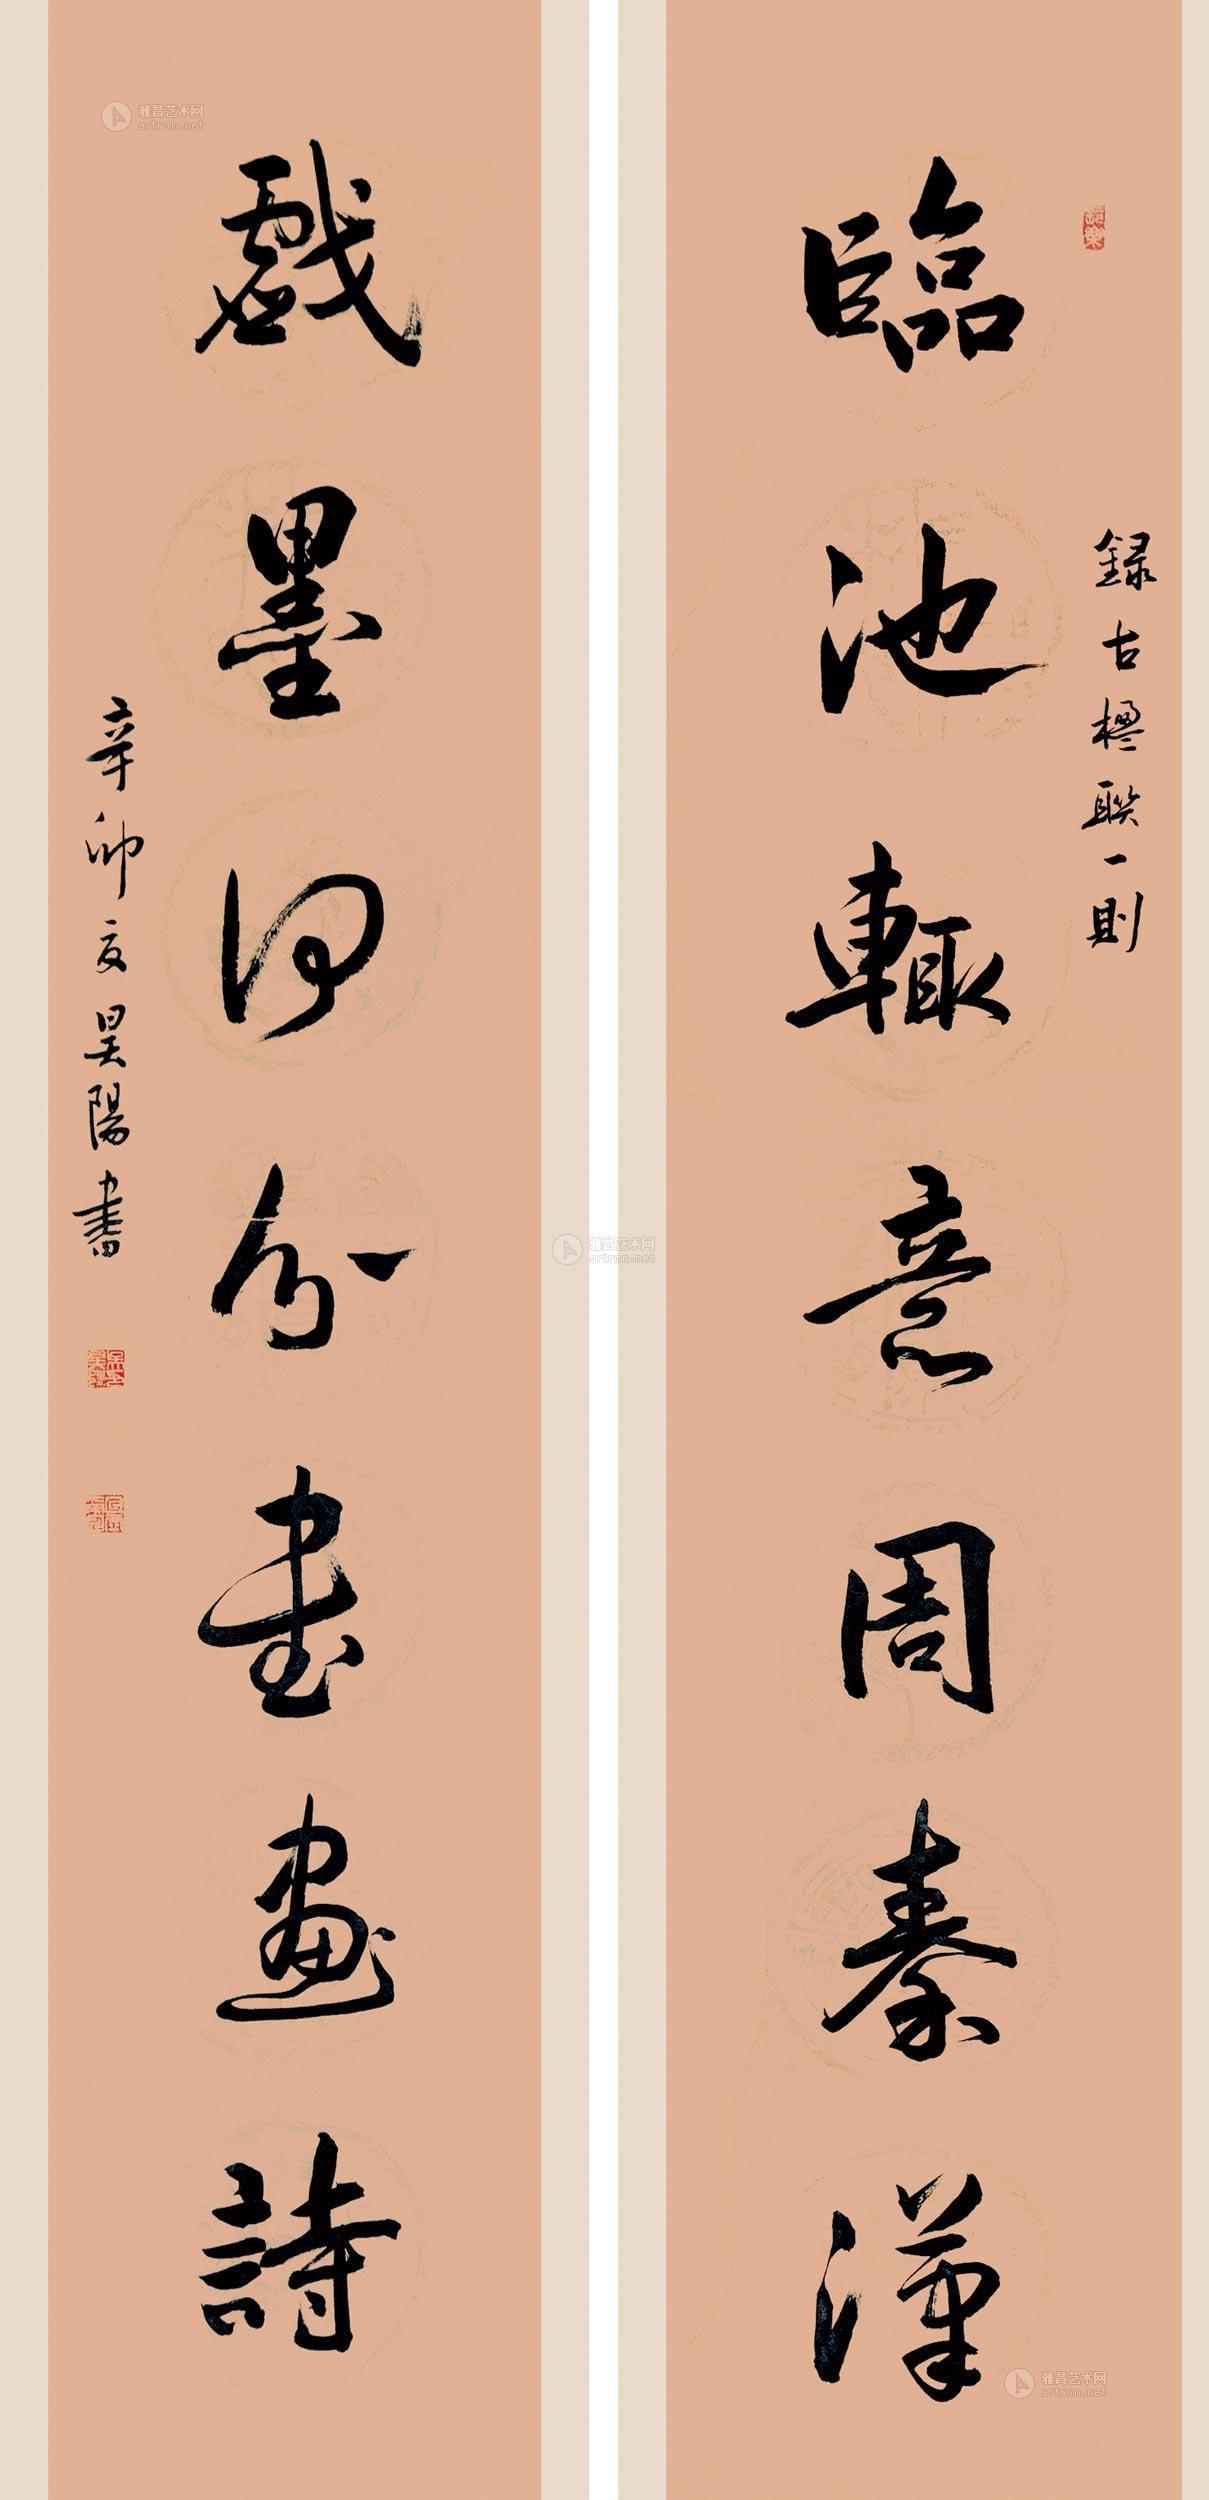 録古楹联一則
臨池輒意周秦漢
戲墨何分書畫詩
辛卯夏昊陽書
雅昌艺术网
artron.net
雅昌艺术网
artron.net
雅昌艺术网
artron.net